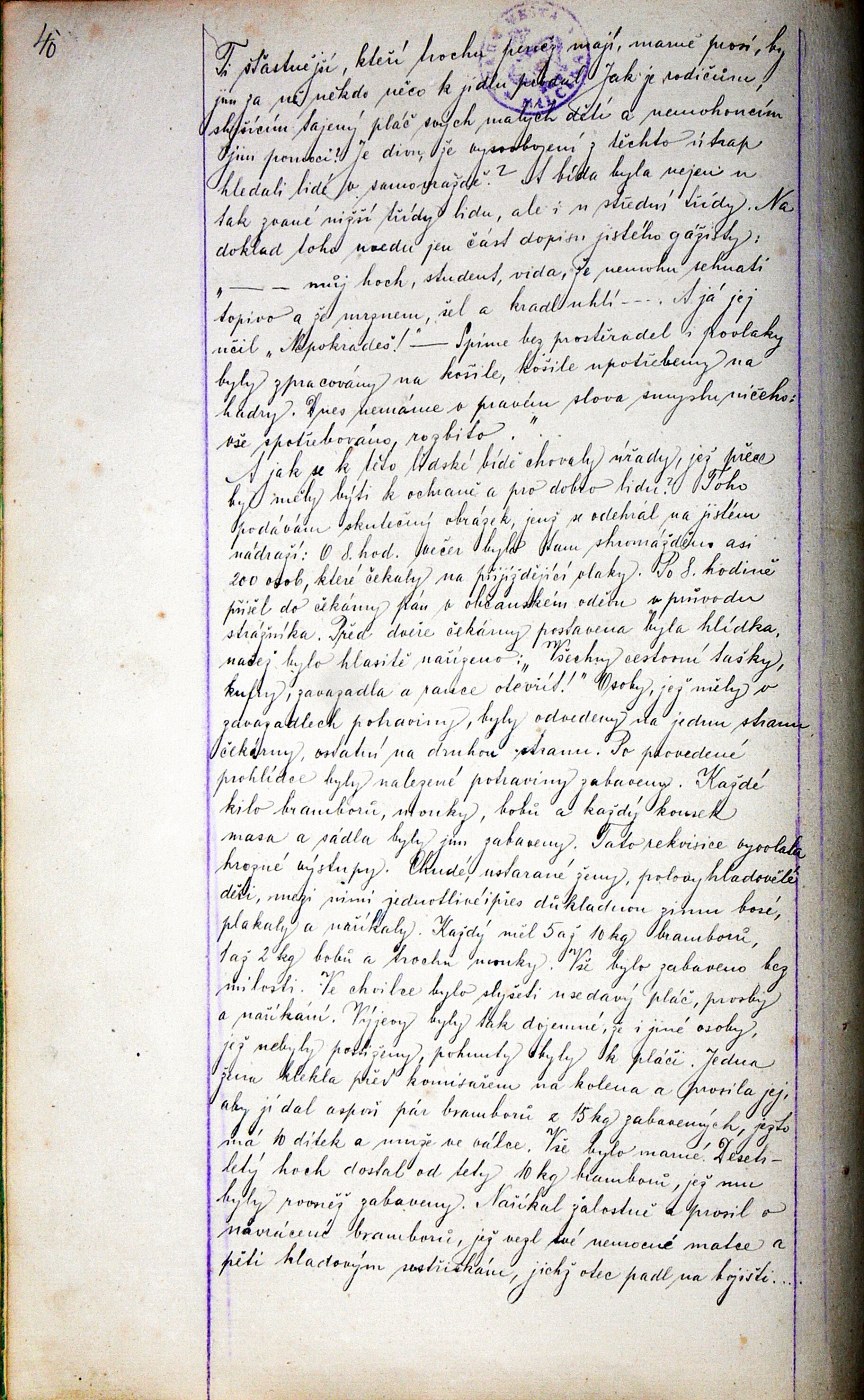 40
Ti šťastnější, kteří trochu peněz mají, marně prosí, by
jim za ně někdo něco k jídlu prodal. Jak je rodičům,
slyšícím tajený pláč svých malých dětí a nemohoucím
jim pomoci! Je divno, že vysvobození z těchto útrap
hledali lidé v samovraždě? A bída byla nejen u
tak zvané nižší třídy lidu, ale i u střední třídy. Na
doklad toho uvedu jen část dopisu jistého gážisty:
„— — můj hoch, student, vida, že nemohu sehnati
topivo a že mrznem, šel a kradl uhlí —. A já jej
učil „Nepokradeš!" — Spíme bez prostěradel i povlaky
byly zpracovány na košile, košile upotřebeny na
hadry. Dnes nemáme v pravém slova smyslu ničeho:
vše spotřebováno, rozbito."
A jak se k této lidské bídě chovaly úřady, jež přece
by měly býti k ochraně a pro dobro lidu? Toho
podávám skutečný obrázek, jenž se odehrál na jistém
nádraží: O 8. hod. večer bylo tam shromážděno asi
200 osob, které čekaly na přijíždějící vlaky. Po 8. hodině
přišel do čekárny pán v občanském oděvu v průvodu
strážníka. Před dveře čekárny postavena byla hlídka,
načež bylo hlasitě nařízeno: „Všechny cestovní tašky,
kufry, zavazadla a rance otevřít!" Osoby, jež měly v
zavazadlech potraviny, byly odvedeny na jednu stranu
čekárny, ostatní na druhou stranu. Po provedené
prohlídce byly nalezené potraviny zabaveny. Každé
kilo bramborů, mouky, bobů a každý kousek
masa a sádla byly jim zabaveny. Tato rekvisice vyvolala
hrozné výstupy. Chudé, ustarané ženy, polovyhladovělé
děti, mezi nimi jednotlivé i přes důkladnou zimu bosé,
plakaly a naříkaly. Každý měl 5 až 10 kg bramborů,
1 až 2 kg bobů a trochu mouky. Vše bylo zabaveno bez
milosti. Ve chvilce bylo slyšeti usedavý pláč, prosby
a naříkání. Výjevy byly tak dojemné, že i jiné osoby,
jež nebyly postiženy, pohnuty byly k pláči. Jedna
žena klekla před komisařem na kolena a prosila jej,
aby jí dal aspoň pár bramborů z 15 kg zabavených, ježto
má 10 dítek a muže ve válce. Vše bylo marné. Deseti-
letý hoch dostal od tety 10 kg bramborů, jež mu
byly rovněž zabaveny. Naříkal žalostně a prosil o
návrácení bramborů, jež vezl své nemocné matce a
pěti hladovým sestřičkám, jichž otec padl na bojišti...